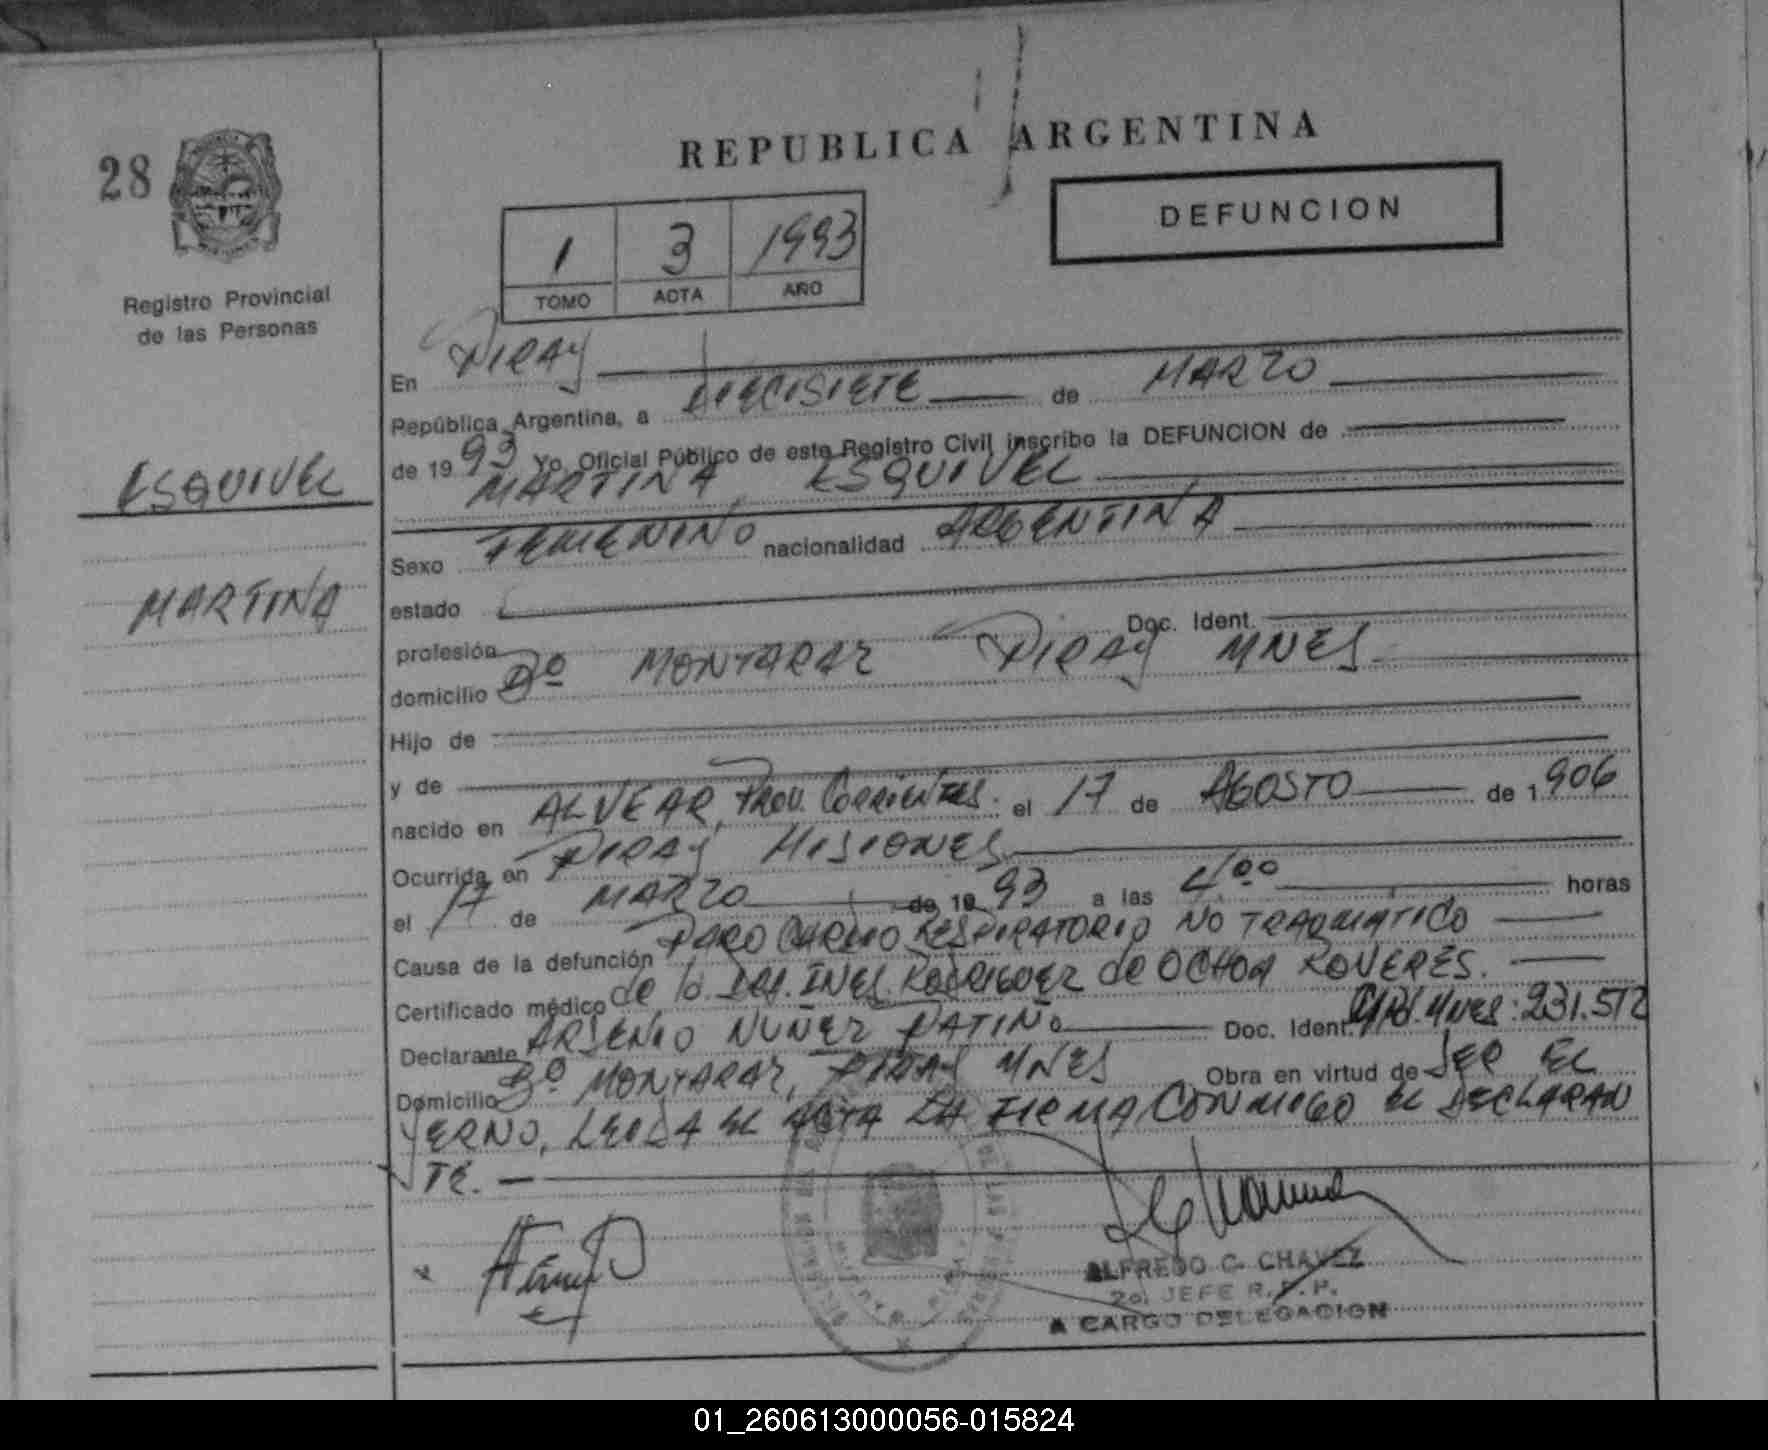 28
Registro Provincial
de las Personas
ESQUIVEL
MARTINA
REPUBLICA ARGENTINA
DEFUNCION
1 3 1993
TOMO ACTA AÑO
En PIRAY
República Argentina, a DIECISIETE de MARZO
de 1993 Yo, Oficial Público de este Registro Civil inscribo la DEFUNCION de
MARTINA, ESQUIVEL
Sexo FEMENINO nacionalidad ARGENTINA
estado
profesión Doc. Ident.
domicilio Bº MONTARAZ PIRAY MNES
Hijo de
y de
nacido en ALVEAR, PROV. Corrientes. el 17 de AGOSTO de 1.906
Ocurrida en PIRAY MISIONES
el 17 de MARZO de 1993 a las 4,00 horas
Causa de la defunción PARO CARDIO RESPIRATORIO NO TRAUMATICO
Certificado médico de la DRA. INES RODRIGUEZ de OCHOA ROVERES.
Declarante ARSENIO NUÑEZ PATIÑO Doc. Ident. MNES: 231.512
Domicilio Bº MONTARAZ, PIRAY MNES Obra en virtud de SER EL
YERNO, LEIDA EL ACTA LA FIRMA CONMIGO EL DECLARAN
TE.
ALFREDO C. CHAVEZ
2º JEFE R.P.P.
A CARGO DELEGACION
01_260613000056-015824